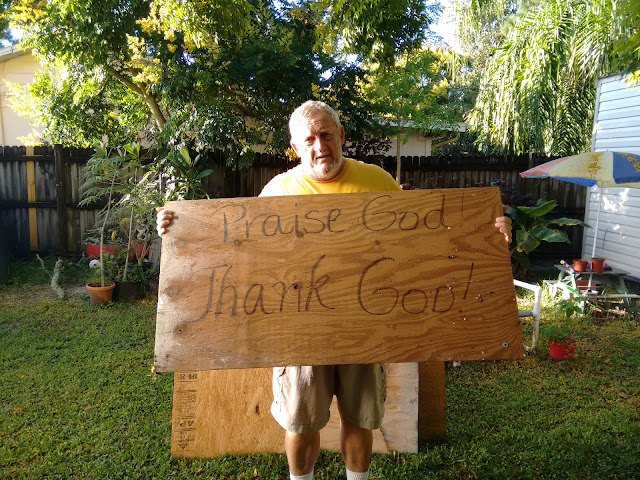 Praise God!
Thank God!